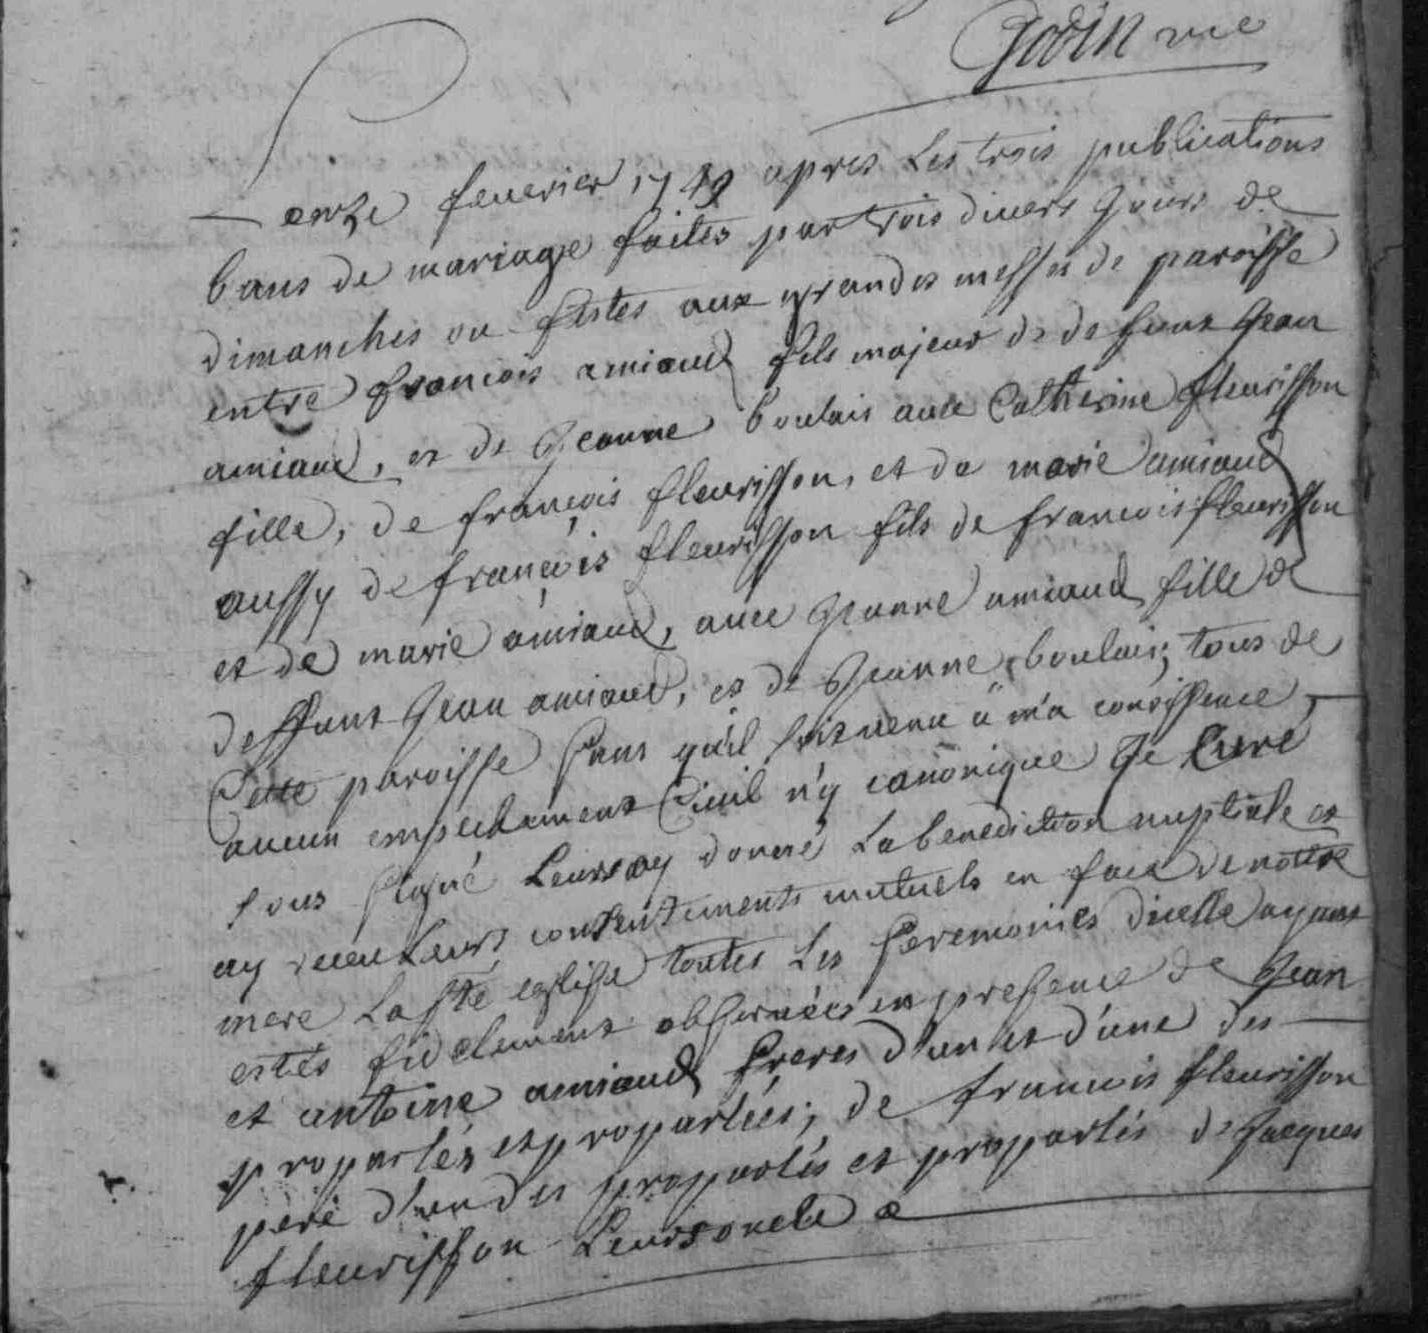 Godin vic
Lonze feuerier 1749 apres Les trois publications
bans de mariage faites par trois divers Jours de
dimanches ou festes aux grandes messes de paroisse
entre françois amiaud fils majeur de deffunt Jean
amiaud, et de Jeanne boulais avec Catherine fleurisson
fille, de françois fleurisson, et de marie amiaud
aussy de françois fleurisson fils de francois fleurisson
et de marie amiaud, avec Jeanne amiaud fille de
deffunt Jean amiaud, et de Jeanne boulais; tous de
Cette paroisse sans qu'il soit venu a m'a conoissence
aucun empechement Ciuil n'y canonique Je Curé
sous signé Leurs ay donné La benediction nuptiale et
ay receu Leurs consentiments mutuels en face de notre
mere La ste eglise toutes Les Ceremonies dicelle ayant
estés fidelement obseruées en presence de Jean
et antoine amiaud freres d'un et d'une des
propartés et propartées; de francois fleurisson
pere d'un des propartés et propartés de Jacques
fleurisson Leurs oncle &